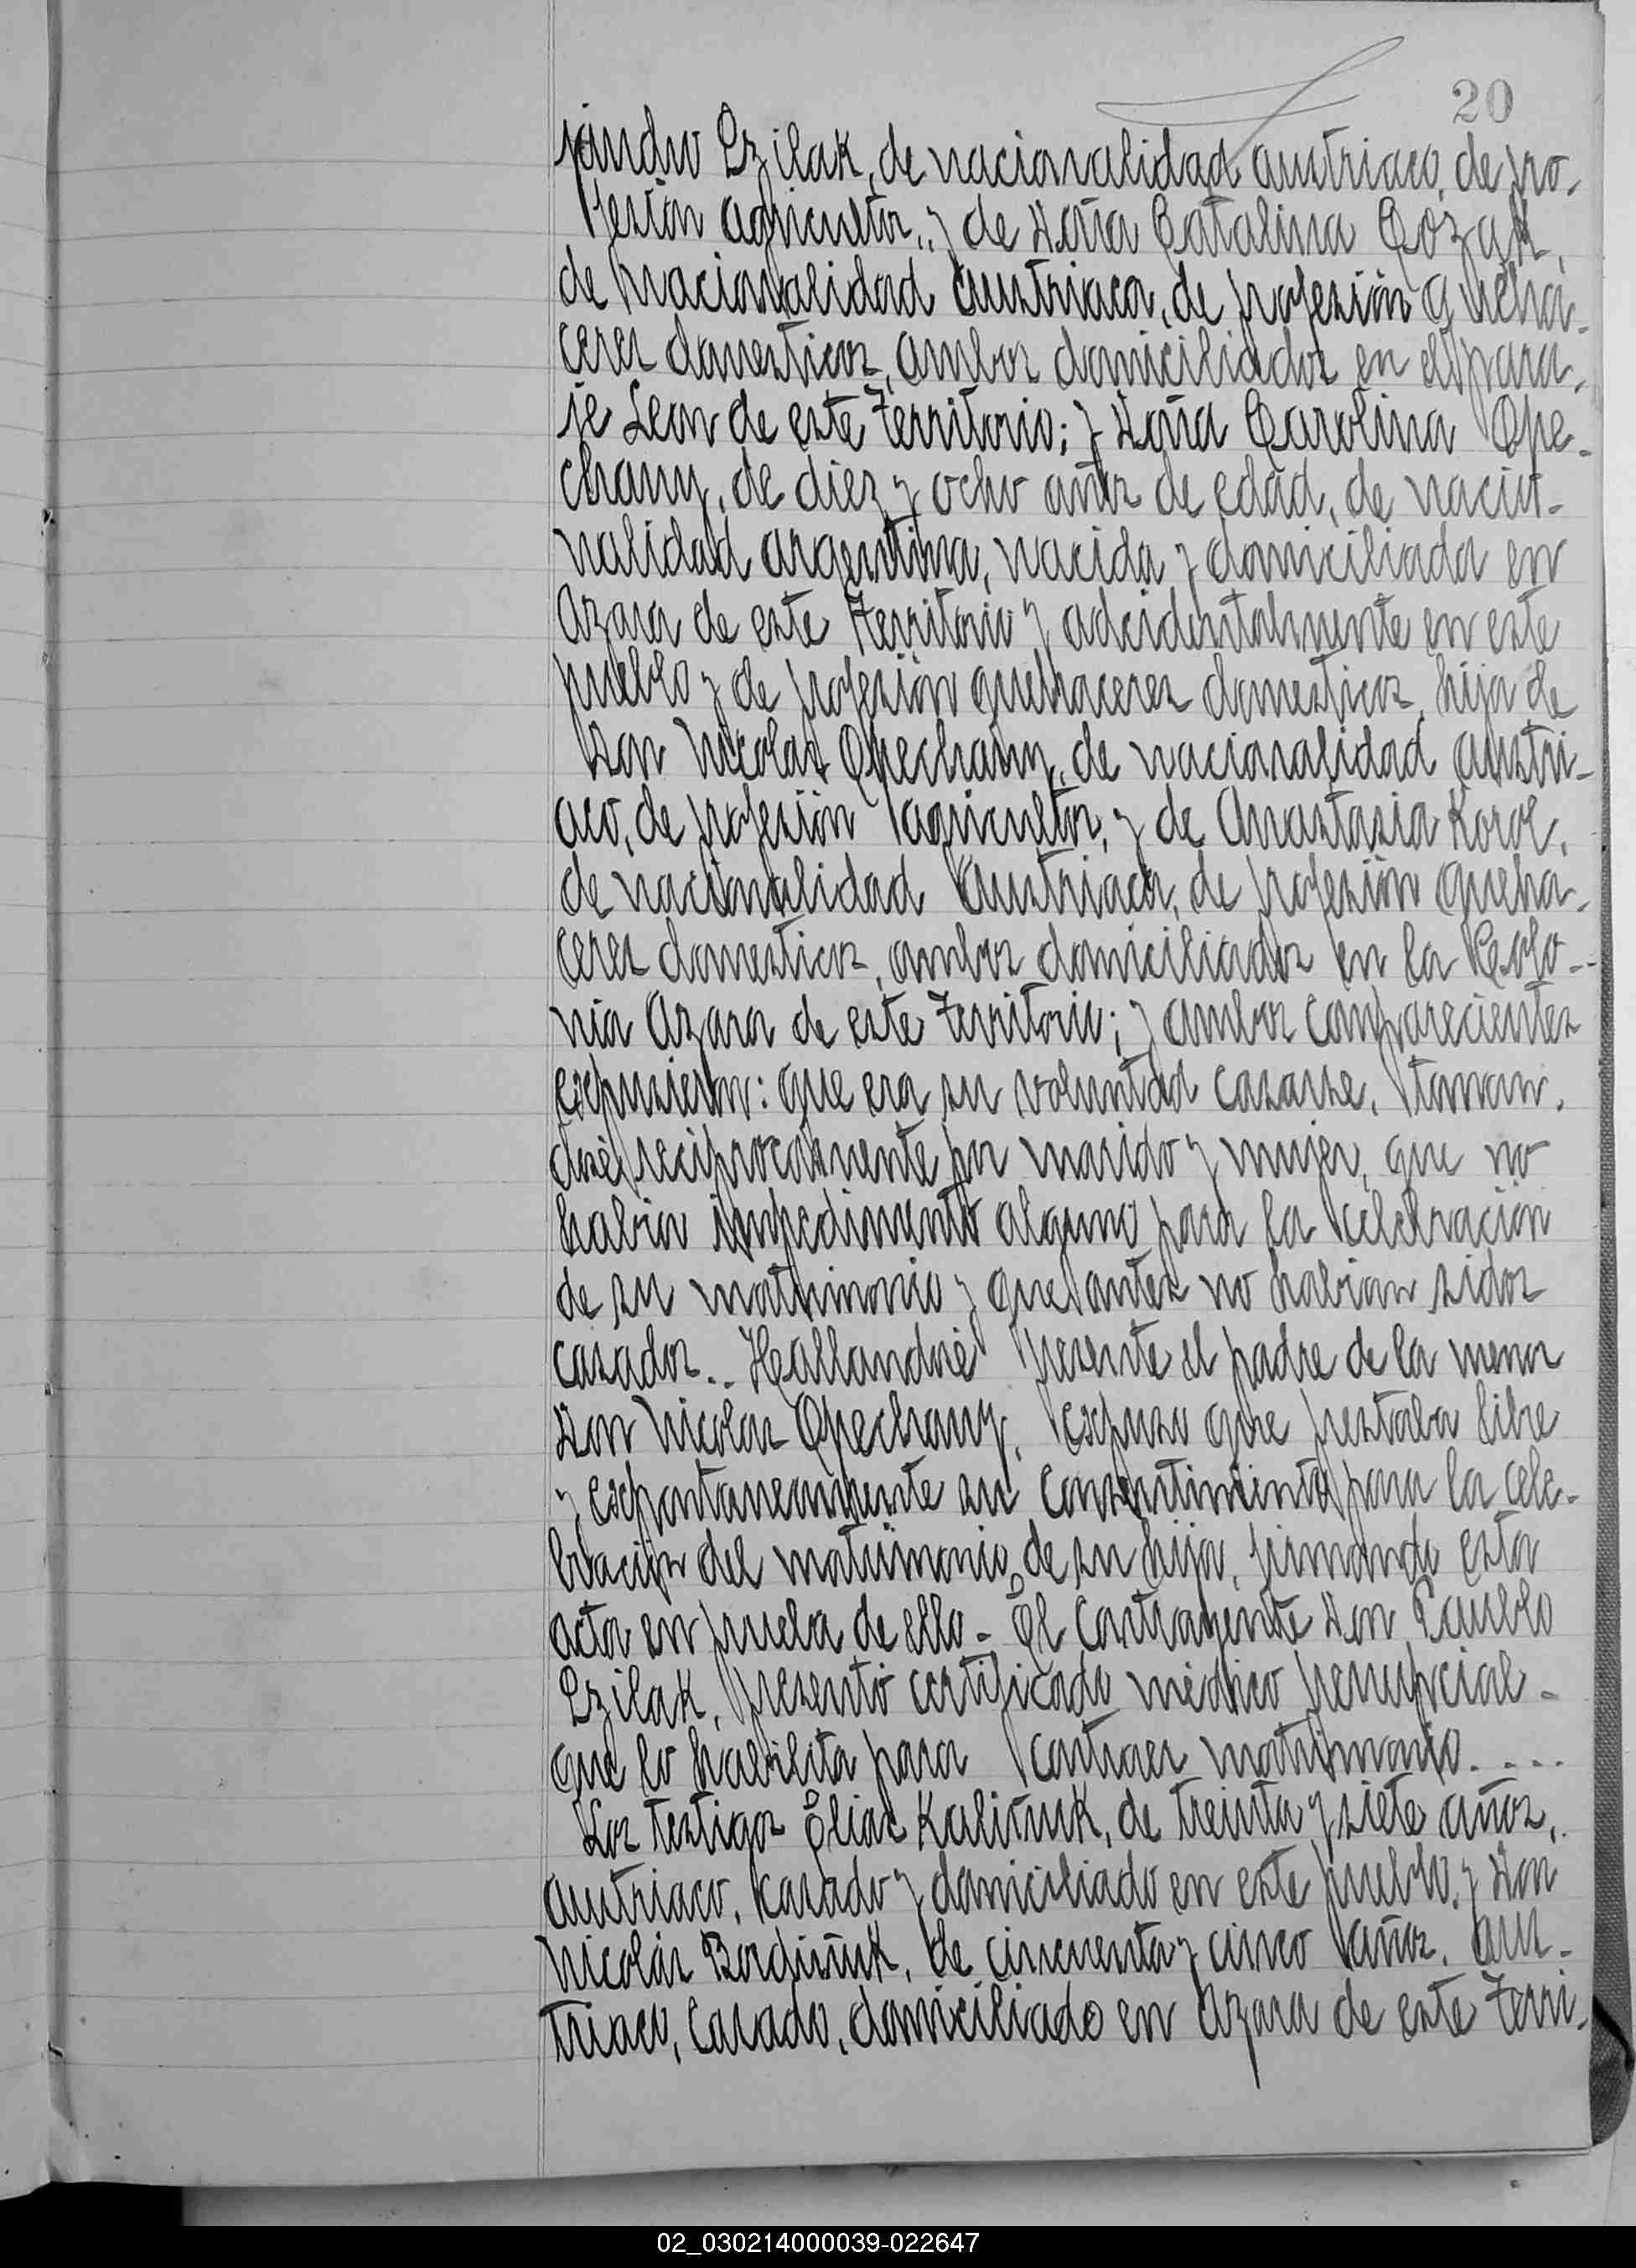 20
jandro Czilak, de nacionalidad austriaco, de pro-
fesión agricultor, y de Doña Catalina Cozak,
de nacionalidad austriaca, de profesión queha-
ceres domesticos, ambos domiciliados en el para-
je Leon de este Territorio; y Doña Carolina Ope-
chany, de diez y ocho años de edad, de nacio-
nalidad argentina, nacida y domiciliada en
Azara de este Territorio y adcidentalmente en este
pueblo y de profesión quehaceres domesticos, hija de
Don Nicolas Opechany, de nacionalidad austri-
aco, de profesión agricultor, y de Anastasia Korol,
de nacionalidad Austriaca, de profesión queha-
ceres domesticos, ambos domiciliados en la Colo-
nia Azara de este Territorio; y ambos comparecientes
expusieron: que era su voluntad casarse, toman-
dose reciprocamente por marido y mujer, que no
habia impedimento alguno para la celebracion
de su matrimonio y que antes no habian sidos
casados.. Hallandose presente el padre de la menor
Don Nicolas Opechany, expuso que prestaba libre
y expontaneamente su consentimiento para la cele-
bracion del matrimonio de su hija, firmando esta
acta en prueba de ello - El contrayente Don Paublo
Czilak, presentó certificado médico prenupcial -
que lo habilita para contraer matrimonio....
Los testigos Elias Kaliñuk, de treinta y siete años,
austriaco, casado y domiciliado en este pueblo, y Don
Nicolás Bordiñuk, de cincuenta y cinco años, aus-
triaco, casado, domiciliado en Azara de este Terri-
02_030214000039-022647